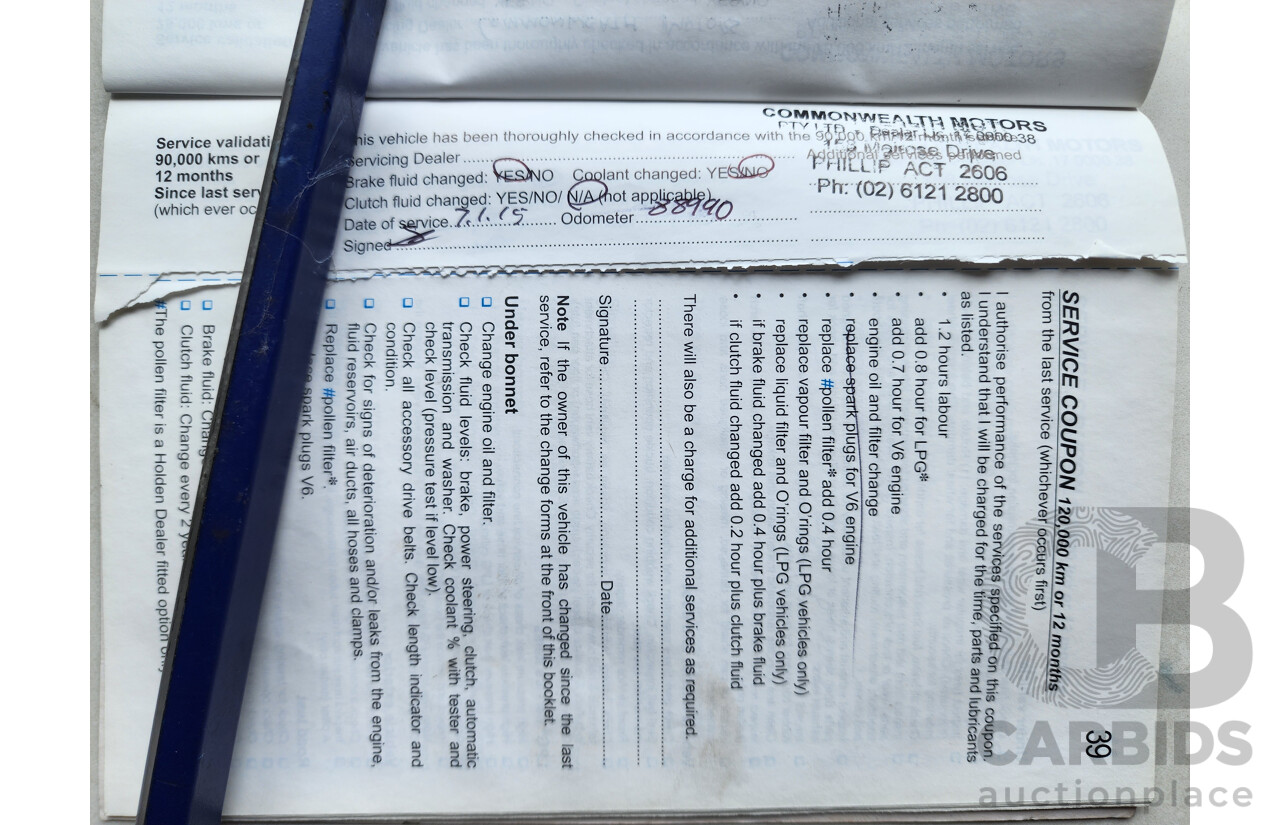 COMMONWEALTH MOTORS
PTY LTD
Melrose Drive
PHILLIP ACT 2606
Ph: (02) 6121 2800
Service validati
90,000 kms or
12 months
Since last ser
(which ever oc
his vehicle has been thoroughly checked in accordance with the 90,000 km/12 month
Servicing Dealer
Additional services performed
Brake fluid changed: YES/NO Coolant changed: YES/NO
Clutch fluid changed: YES/NO/ N/A (not applicable)
Date of service 7.1.15 Odometer 88990
Signed
39
SERVICE COUPON 120,000 km or 12 months
from the last service (whichever occurs first)
I authorise performance of the services specified on this coupon.
I understand that I will be charged for the time, parts and lubricants
as listed.
• 1.2 hours labour
• add 0.8 hour for LPG*
• add 0.7 hour for V6 engine
• engine oil and filter change
• replace spark plugs for V6 engine
• replace #pollen filter* add 0.4 hour
• replace vapour filter and O'rings (LPG vehicles only)
• replace liquid filter and O'rings (LPG vehicles only)
• if brake fluid changed add 0.4 hour plus brake fluid
• if clutch fluid changed add 0.2 hour plus clutch fluid
There will also be a charge for additional services as required.
Signature Date
Note If the owner of this vehicle has changed since the last
service, refer to the change forms at the front of this booklet.
Under bonnet
Change engine oil and filter.
Check fluid levels: brake, power steering, clutch, automatic
transmission and washer. Check coolant % with tester and
check level (pressure test if level low).
Check all accessory drive belts. Check length indicator and
condition.
Check for signs of deterioration and/or leaks from the engine,
fluid reservoirs, air ducts, all hoses and clamps.
Replace #pollen filter*.
spark plugs V6.
Brake fluid: Chang
Clutch fluid: Change every 2 ye
#The pollen filter is a Holden Dealer fitted option only
CARBIDS
auctionplace